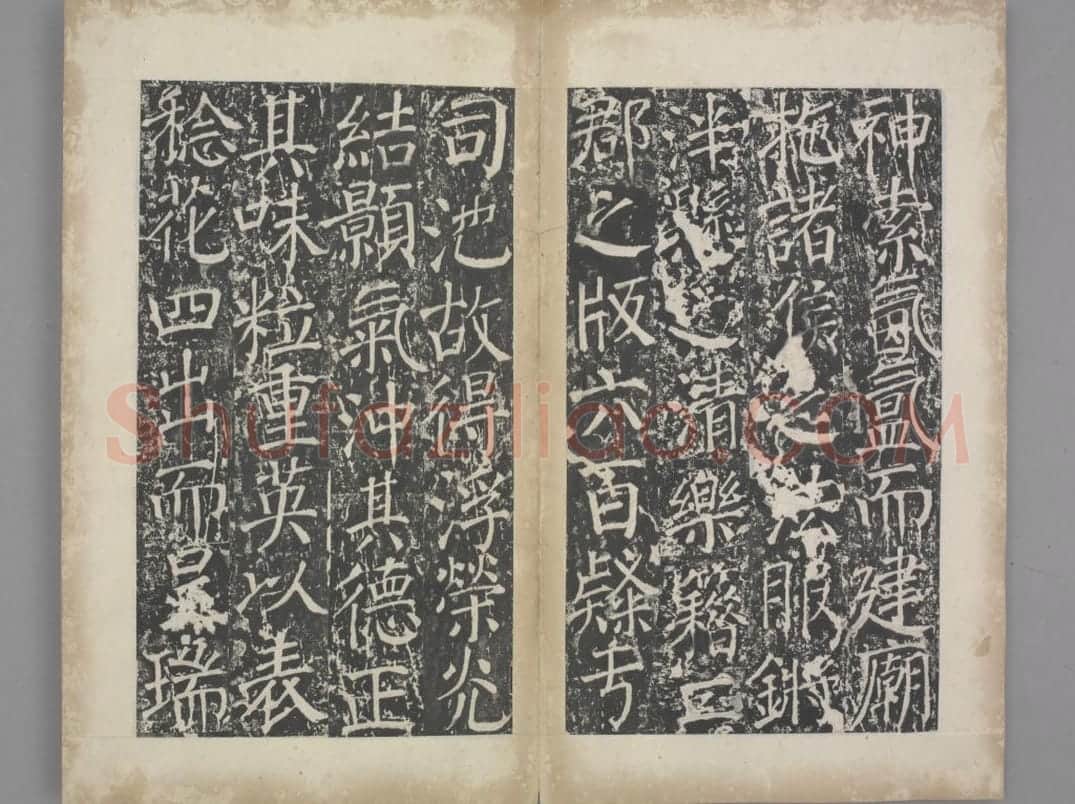 神索氤氳而建廟
拖諸侯之服鏘
泮縣之清樂籍三
郡之版六百
司池故得浮榮光
結顥氣沖其德正
其味粒重英以表
稔花四出而呈瑞
Shufaziliao.COM